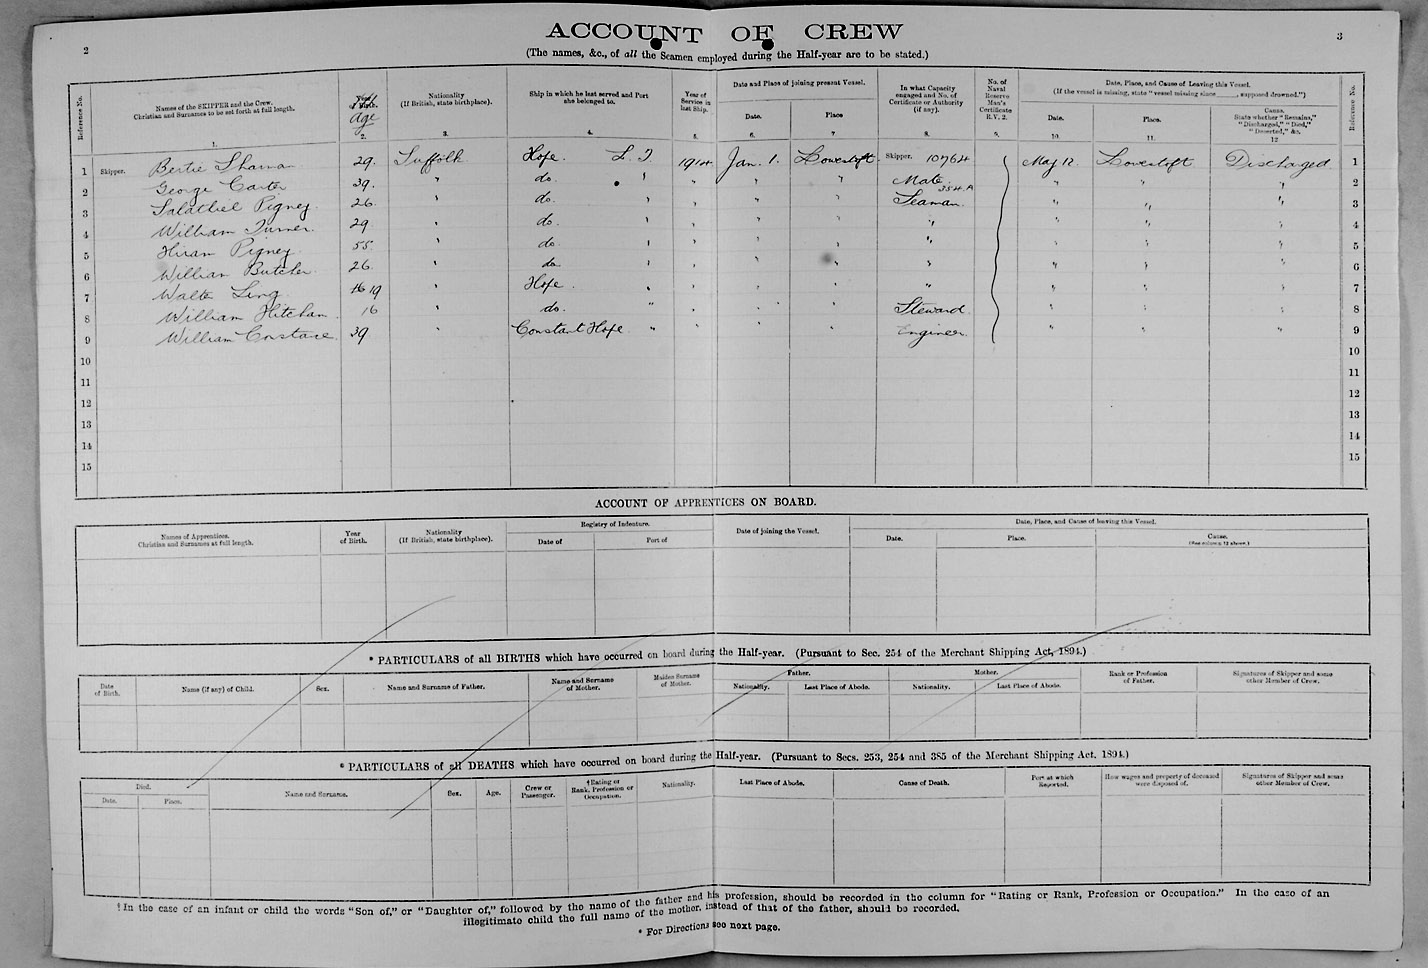 2
ACCOUNT OF CREW
3
(The names, &c., of all the Seamen employed during the Half-year are to be stated.)
Reference No.
Names of the SKIPPER and the Crew.
Christian and Surnames to be set forth at full length.
1.
Year of Birth.
Age
2.
Nationality
(If British, state birthplace).
3.
Ship in which he last served and Port
she belonged to.
4.
Year of
Service in
last Ship.
5.
Date and Place of joining present Vessel.
Date.
6.
Place
7
In what Capacity
engaged and No. of
Certificate or Authority
(if any).
8.
No. of
Naval
Reserve
Man's
Certificate
R.V. 2.
9.
Date, Place, and Cause of Leaving this Vessel.
(If the vessel is missing, state "vessel missing since ____, supposed drowned.")
Date.
10.
Place.
11.
Cause.
State whether "Remains,"
"Discharged," "Died,"
"Deserted," &c.
12
Reference No.
1 Skipper. Bertie Sharman 29. Suffolk Hope. L. T. 1914 Jan. 1. Lowestoft Skipper. 10764 May 12. Lowestoft Discharged. 1
2 George Carter 39. " do. " " " " Mate 354.A " " " 2
3 Salathiel Pigney 26. " do. " " " " Seaman. " " " 3
4 William Turner. 29 " do. " " " " " " " " 4
5 Hiram Pigney 55. " do. " " " " " " " " 5
6 William Butcher. 26. " do. " " " " " " " " 6
7 Walter Ling. 19 " Hope. " " " " " " " " 7
8 William Hitcham. 16 " do. " " " " Steward. " " " 8
9 William Constance. 39. " Constant Hope " " " " Engineer. " " " 9
10 10
11 11
12 12
13 13
14 14
15 15
ACCOUNT OF APPRENTICES ON BOARD.
Names of Apprentices.
Christian and Surnames at full length.
Year
of Birth.
Nationality
(If British, state birthplace).
Registry of Indenture.
Date of
Port of
Date of joining the Vessel.
Date, Place, and Cause of leaving this Vessel.
Date.
Place.
Cause.
(See column 12 above.)
* PARTICULARS of all BIRTHS which have occurred on board during the Half-year. (Pursuant to Sec. 254 of the Merchant Shipping Act, 1894.)
Date
of Birth.
Name (if any) of Child.
Sex.
Name and Surname of Father.
Name and Surname
of Mother.
Maiden Surname
of Mother.
Father.
Nationality.
Last Place of Abode.
Mother.
Nationality.
Last Place of Abode.
Rank or Profession
of Father.
Signatures of Skipper and some
other Member of Crew.
* PARTICULARS of all DEATHS which have occurred on board during the Half-year. (Pursuant to Secs. 253, 254 and 385 of the Merchant Shipping Act, 1894.)
Died.
Date.
Place.
Name and Surname.
Sex.
Age.
Crew or
Passenger.
†Rating or
Rank, Profession or
Occupation.
Nationality.
Last Place of Abode.
Cause of Death.
Port at which
Reported.
How wages and property of deceased
were disposed of.
Signatures of Skipper and some
other Member of Crew.
† In the case of an infant or child the words "Son of," or "Daughter of," followed by the name of the father and his profession, should be recorded in the column for "Rating or Rank, Profession or Occupation." In the case of an
illegitimate child the full name of the mother, instead of that of the father, should be recorded.
* For Directions see next page.